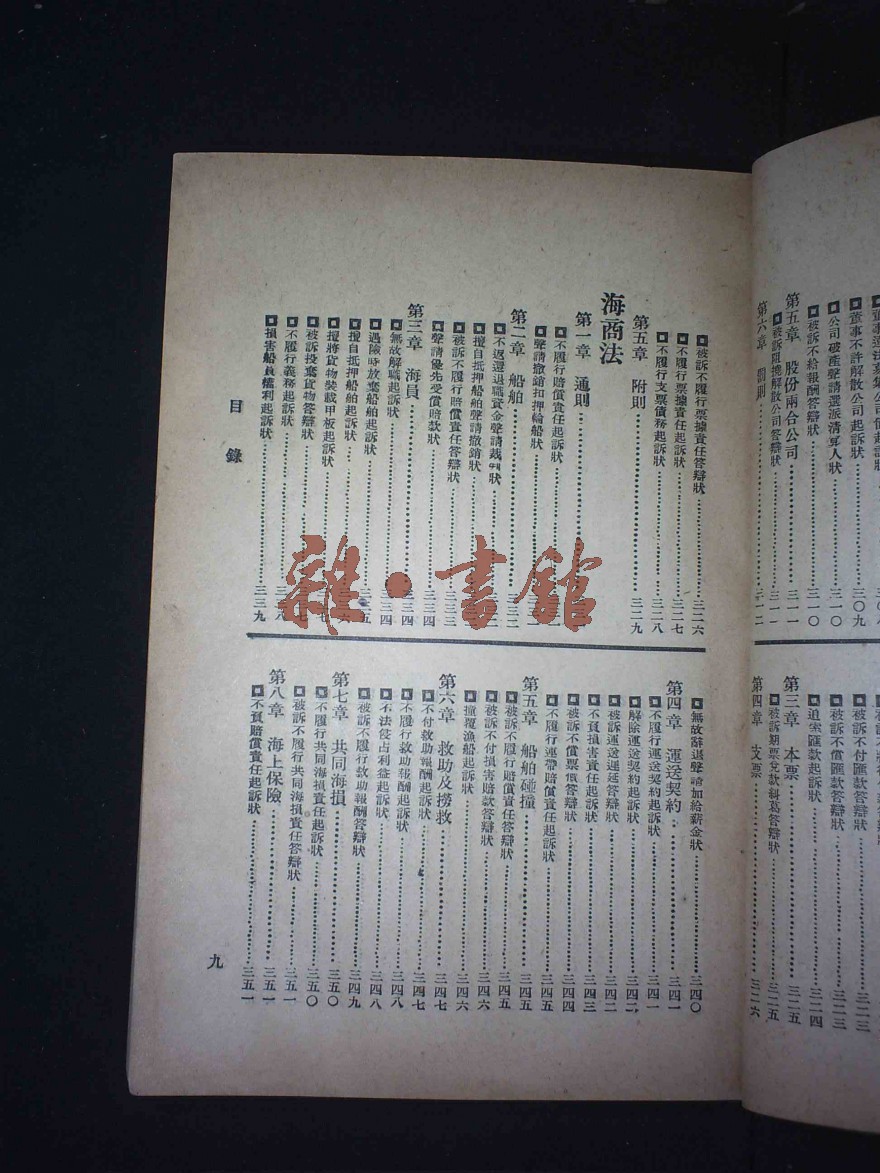 董事不許解散公司起訴狀……三〇九
公司破產聲請選派清算人狀……三一〇
被訴不給報酬答辯狀……三一〇
第五章 股份兩合公司……三一一
被訴阻撓解散公司答辯狀……三一一
第六章 罰則……三一二
被訴不付匯款答辯狀……三二三
被訴不償匯款答辯狀……三二三
追索匯款起訴狀……三二四
第三章 本票……三二五
被訴期票兌款糾葛答辯狀……三二五
第四章 支票……三二六
被訴不履行票據責任答辯狀……三二六
不履行票據責任起訴狀……三二七
不履行支票債務起訴狀……三二八
第五章 附則……三二九
海商法
第一章 通則……
不履行賠償責任起訴狀……
聲請撤銷扣押輪船狀……
第二章 船舶……三三二
不返還退職資金聲請裁判狀……
擅自抵押船舶聲請撤銷狀……
被訴不履行賠償責任答辯狀……三三三
聲請優先受償賠款狀……三三四
第三章 海員……三三四
無故解職起訴狀……三三四
遇險時放棄船舶起訴狀……五
擅自抵押船舶起訴狀……
擅將貨物裝載甲板起訴狀……
被訴投棄貨物答辯狀……
不履行義務起訴狀……八
損害船員權利起訴狀……三三九
無故辭退聲請加給薪金狀……三四〇
第四章 運送契約……三四一
不履行運送契約起訴狀……三四一
解除運送契約起訴狀……三四二
被訴運送遲延答辯狀……三四二
不負損害責任起訴狀……三四三
被訴不償票價答辯狀……三四四
不履行連帶賠償責任起訴狀……三四五
第五章 船舶碰撞……三四五
被訴不履行賠償責任答辯狀……三四五
被訴不付損害賠款答辯狀……三四六
撞覆漁船起訴狀……三四六
第六章 救助及撈救……三四七
不付救助報酬起訴狀……三四七
不履行救助報酬起訴狀……三四八
不法侵占利益起訴狀……三四八
被訴不履行救助報酬答辯狀……三四九
第七章 共同海損……三五〇
不履行共同海損責任起訴狀……三五〇
被訴不履行共同海損責任答辯狀……三五一
第八章 海上保險……三五一
不負賠償責任起訴狀……三五一
目錄
九
雜·書館